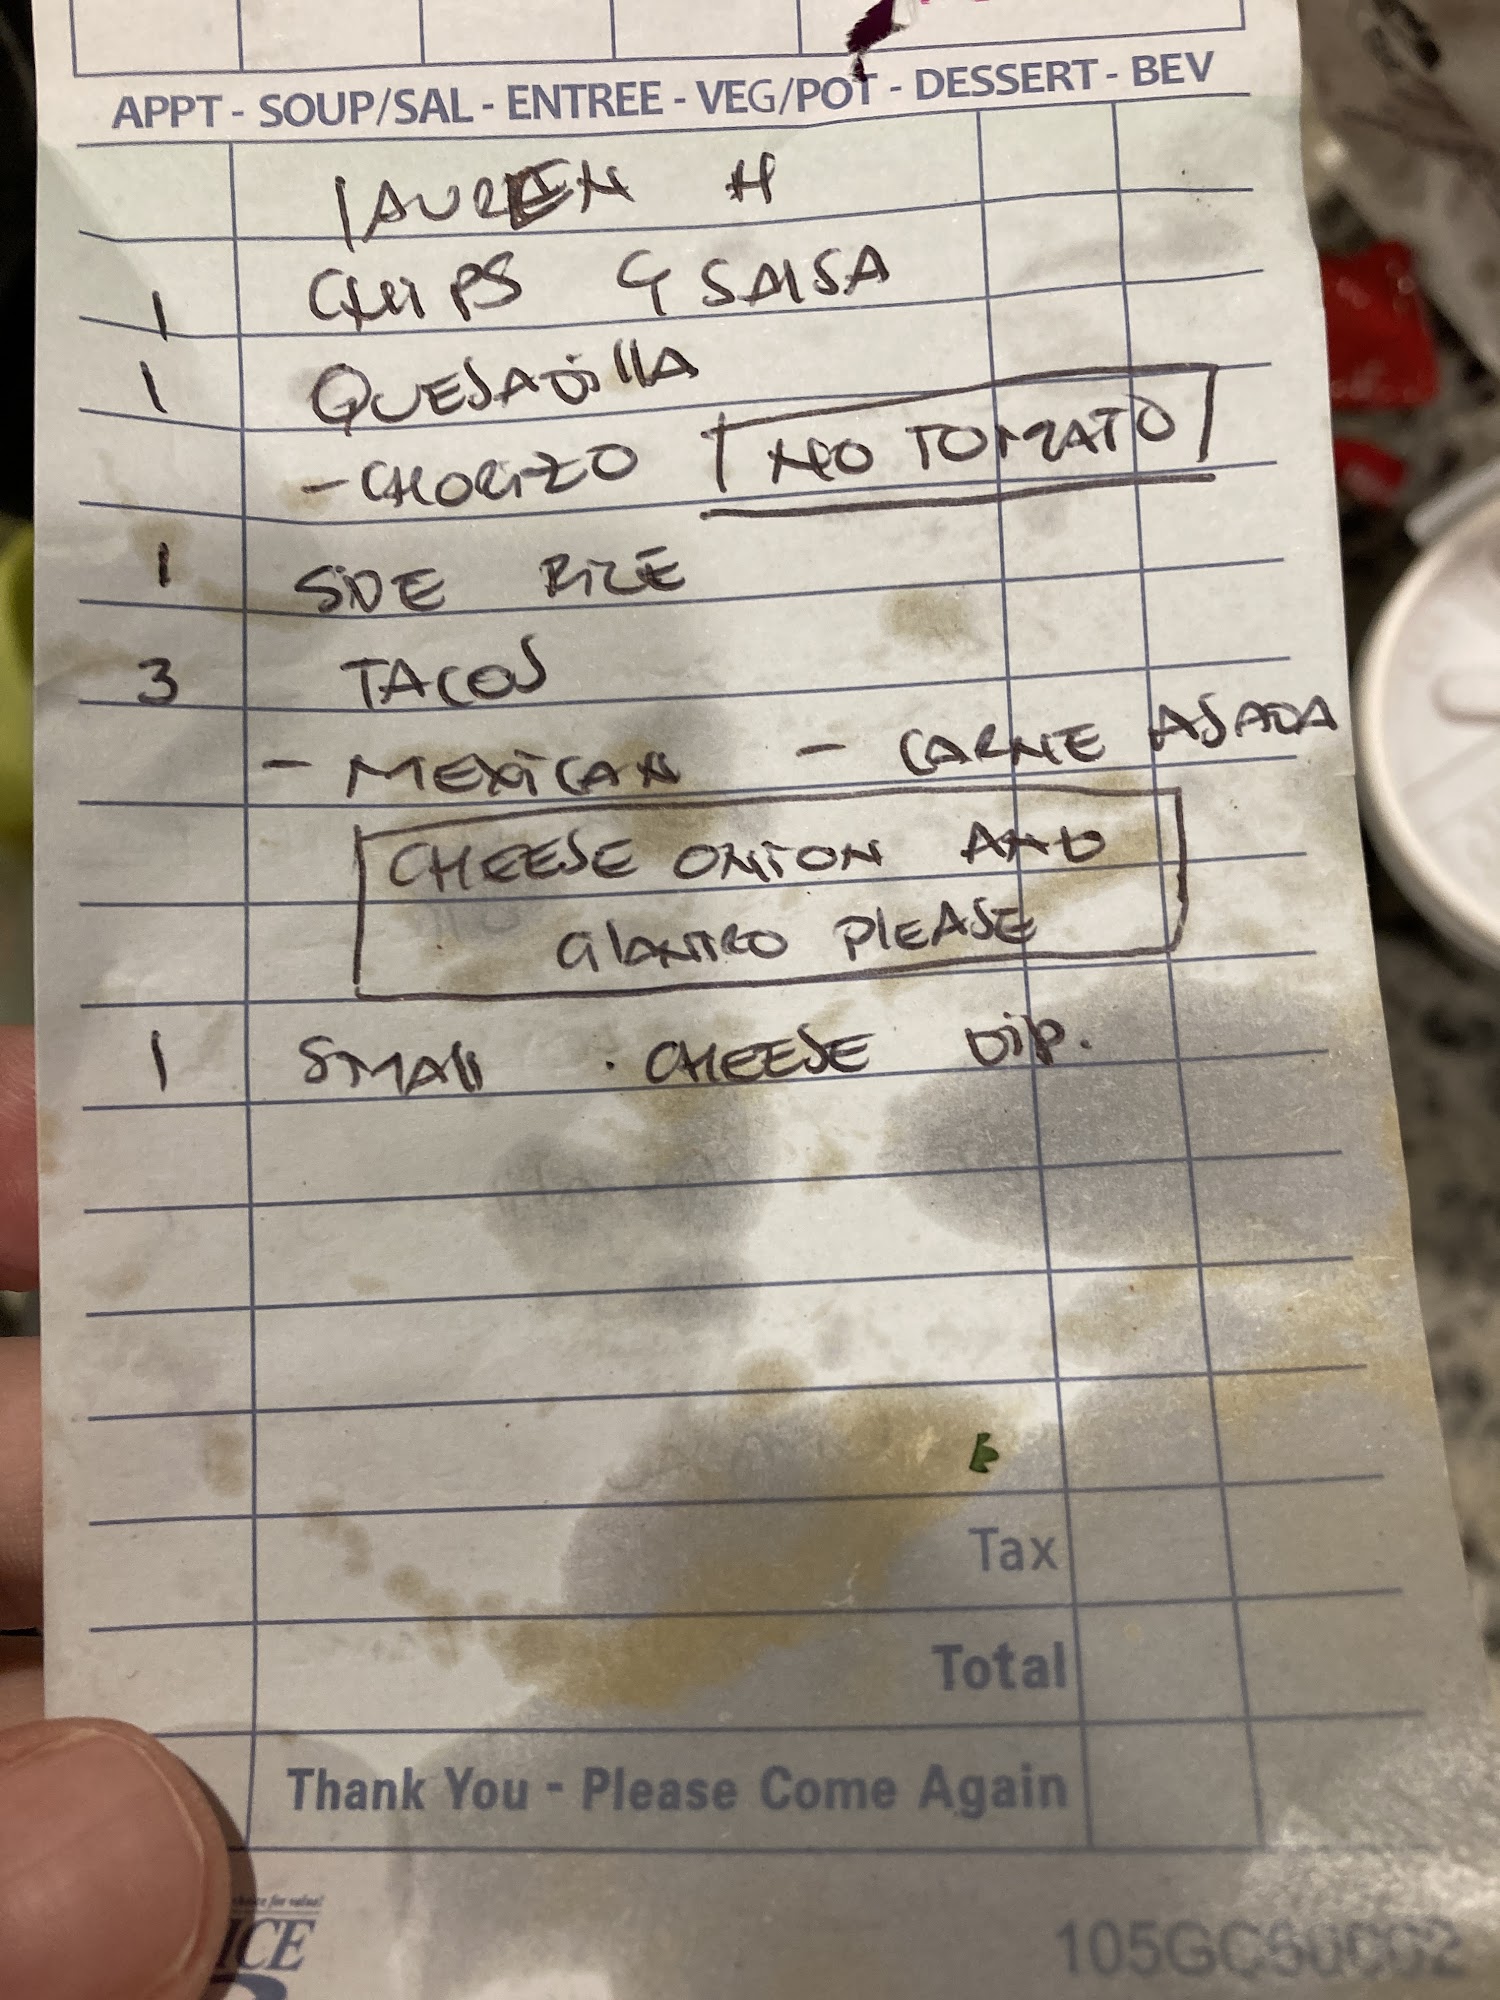 APPT - SOUP/SAL - ENTREE - VEG/POT - DESSERT - BEV
LAUREN H
1 CHIPS & SALSA
1 QUESADILLA
- CHORIZO NO TOMATO
1 SIDE RICE
3 TACOS
- MEXICAN - CARNE ASADA
CHEESE ONION AND
CILANTRO PLEASE
1 SMALL CHEESE DIP.
Tax
Total
Thank You - Please Come Again
for value!
ICE